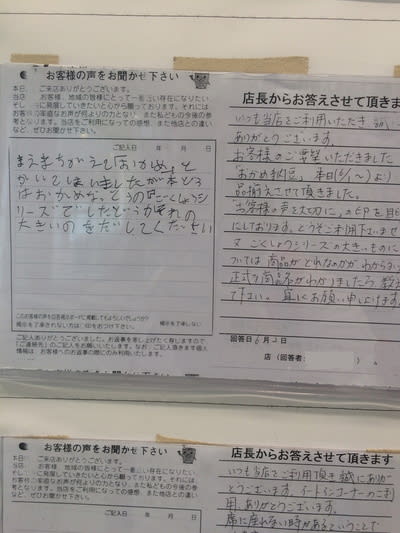 お客様の声をお聞かせ下さい
本日、ご来店ありがとうございます。
当店 お客様、地域の皆様にとって一番 い存在になりたい
そし に発展していきたいと心から願っております。それには
お客様の忠実なお声が何よりの力となり、また私どもの今後の参
考となります。当店をご利用になっての感想、また他店との違い
など、ぜひお聞かせ下さい。
ご記入日 年 月 日
まえきちがえて「おかめ」と
かいてしまいましたが本とう
はおかめなっとうの「こくしょうシ
リーズ」でしたどうかそれの
大きいのをだしてください
このお客様の声を回答掲示ボードに掲載してもよろしいでしょうか?
掲示を了承されない方は○印をおつけ下さい。 掲示を了承しない
ご記入ありがとうございました。お返事を差し上げたく存じますので
「ご連絡先」のご記入をお願いいたします。なお、ご記入頂きます個人
情報は、お客様へのお返事の際にのみ利用いたします。
店長からお答えさせて頂きま
いつも当店をご利用いただき
ありがとうございます。
お客様のご要望いただきました
「おかめ納豆」本日(6/ ~)より
品揃えさせて頂きました。
「お客様の声を大切に」の印を目印
にしております。どうぞお
又 こくしょうシリーズの大きいものに
ついては商品がどれなのかがわからない
正式な商品名がわかりましたら 教え
下さい。宜しくお願い申し上げます。
回答日 6月 2日
店(回答者: )
お客様の声をお聞かせ下さい
本日、ご来店ありがとうございます。
当店 お客様、地域の皆様にとって一番 い存在になりたい
そし に発展していきたいと心から願っております。それには
お客様の忠実なお声が何よりの力となり、また私どもの今後の参
考となります。当店をご利用になっての感想、また他店との違い
など、ぜひお聞かせ下さい。
ご記入日 年 月 日
店長からお答えさせて頂きます
いつも当店をご利用頂き誠にありが
とうございます。イートインコーナーのご利
用、ありがとうございます。
席に座れない時があるということで